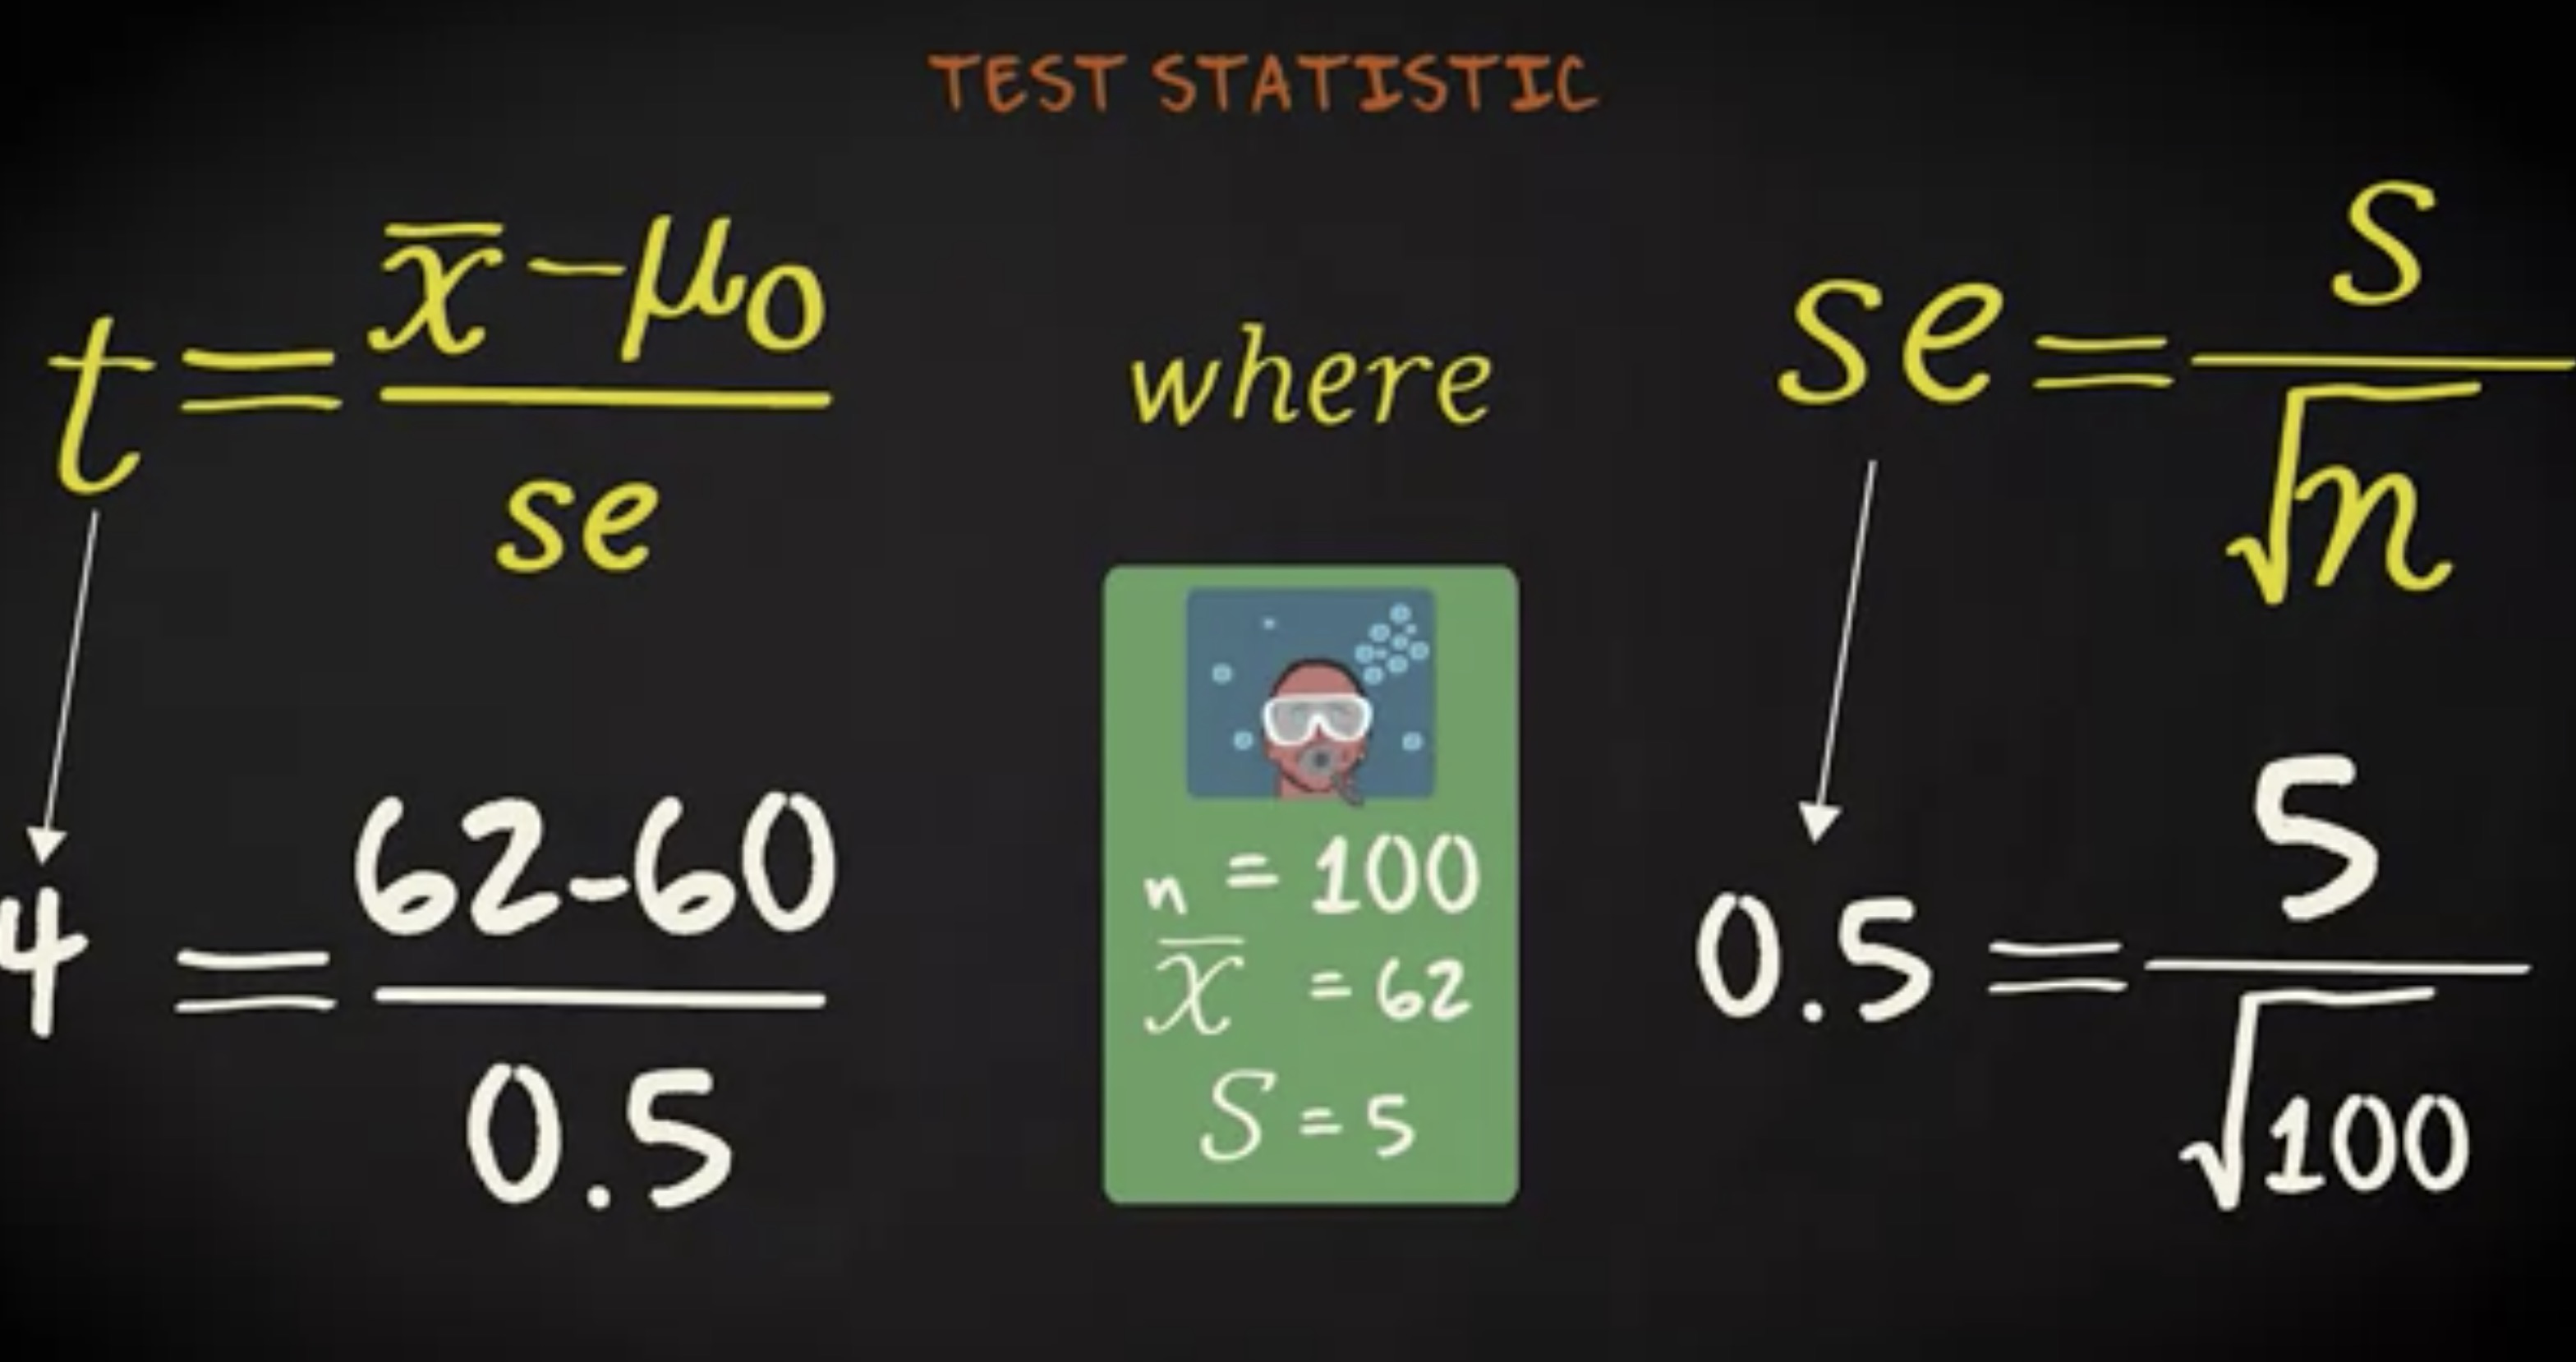 TEST STATISTIC
t = x̄ − μ0 / se
where
se = s / √n
4 = 62-60 / 0.5
n = 100
x̄ = 62
S = 5
0.5 = 5 / √100